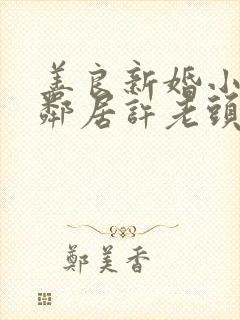 美良新婚小
鄰居許老頭
鄭美香